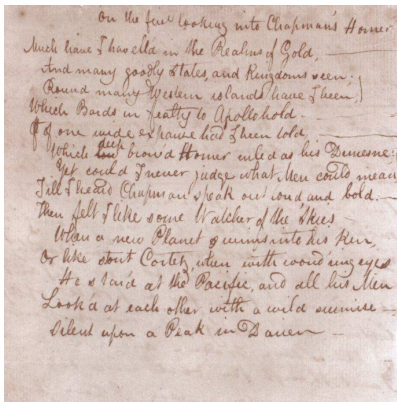 On the first looking into Chapman's Homer
Much have I travell'd in the Realms of Gold,
And many goodly States, and Kingdoms seen;
Round many Western islands have I been,
Which Bards in fealty to Apollo hold.
Of one wide expanse had I been told,
Which deep brow'd Homer ruled as his Demesne:
Yet could I never judge what Men could mean
Till I heard Chapman speak out loud and bold.
Then felt I like some Watcher of the Skies
When a new Planet swims into his Ken,
Or like stout Cortez, when with wond'ring eyes
He star'd at the Pacific, and all his Men
Look'd at each other with a wild surmise
Silent upon a Peak in Darien